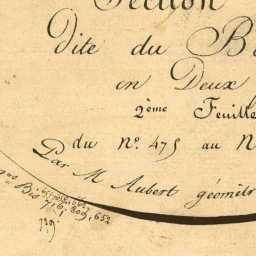 Section
Dite du B
en Deux
2ème Feuille
du Nº 475 au N
Par M Aubert géomètr
Bis 7,61 809, 652